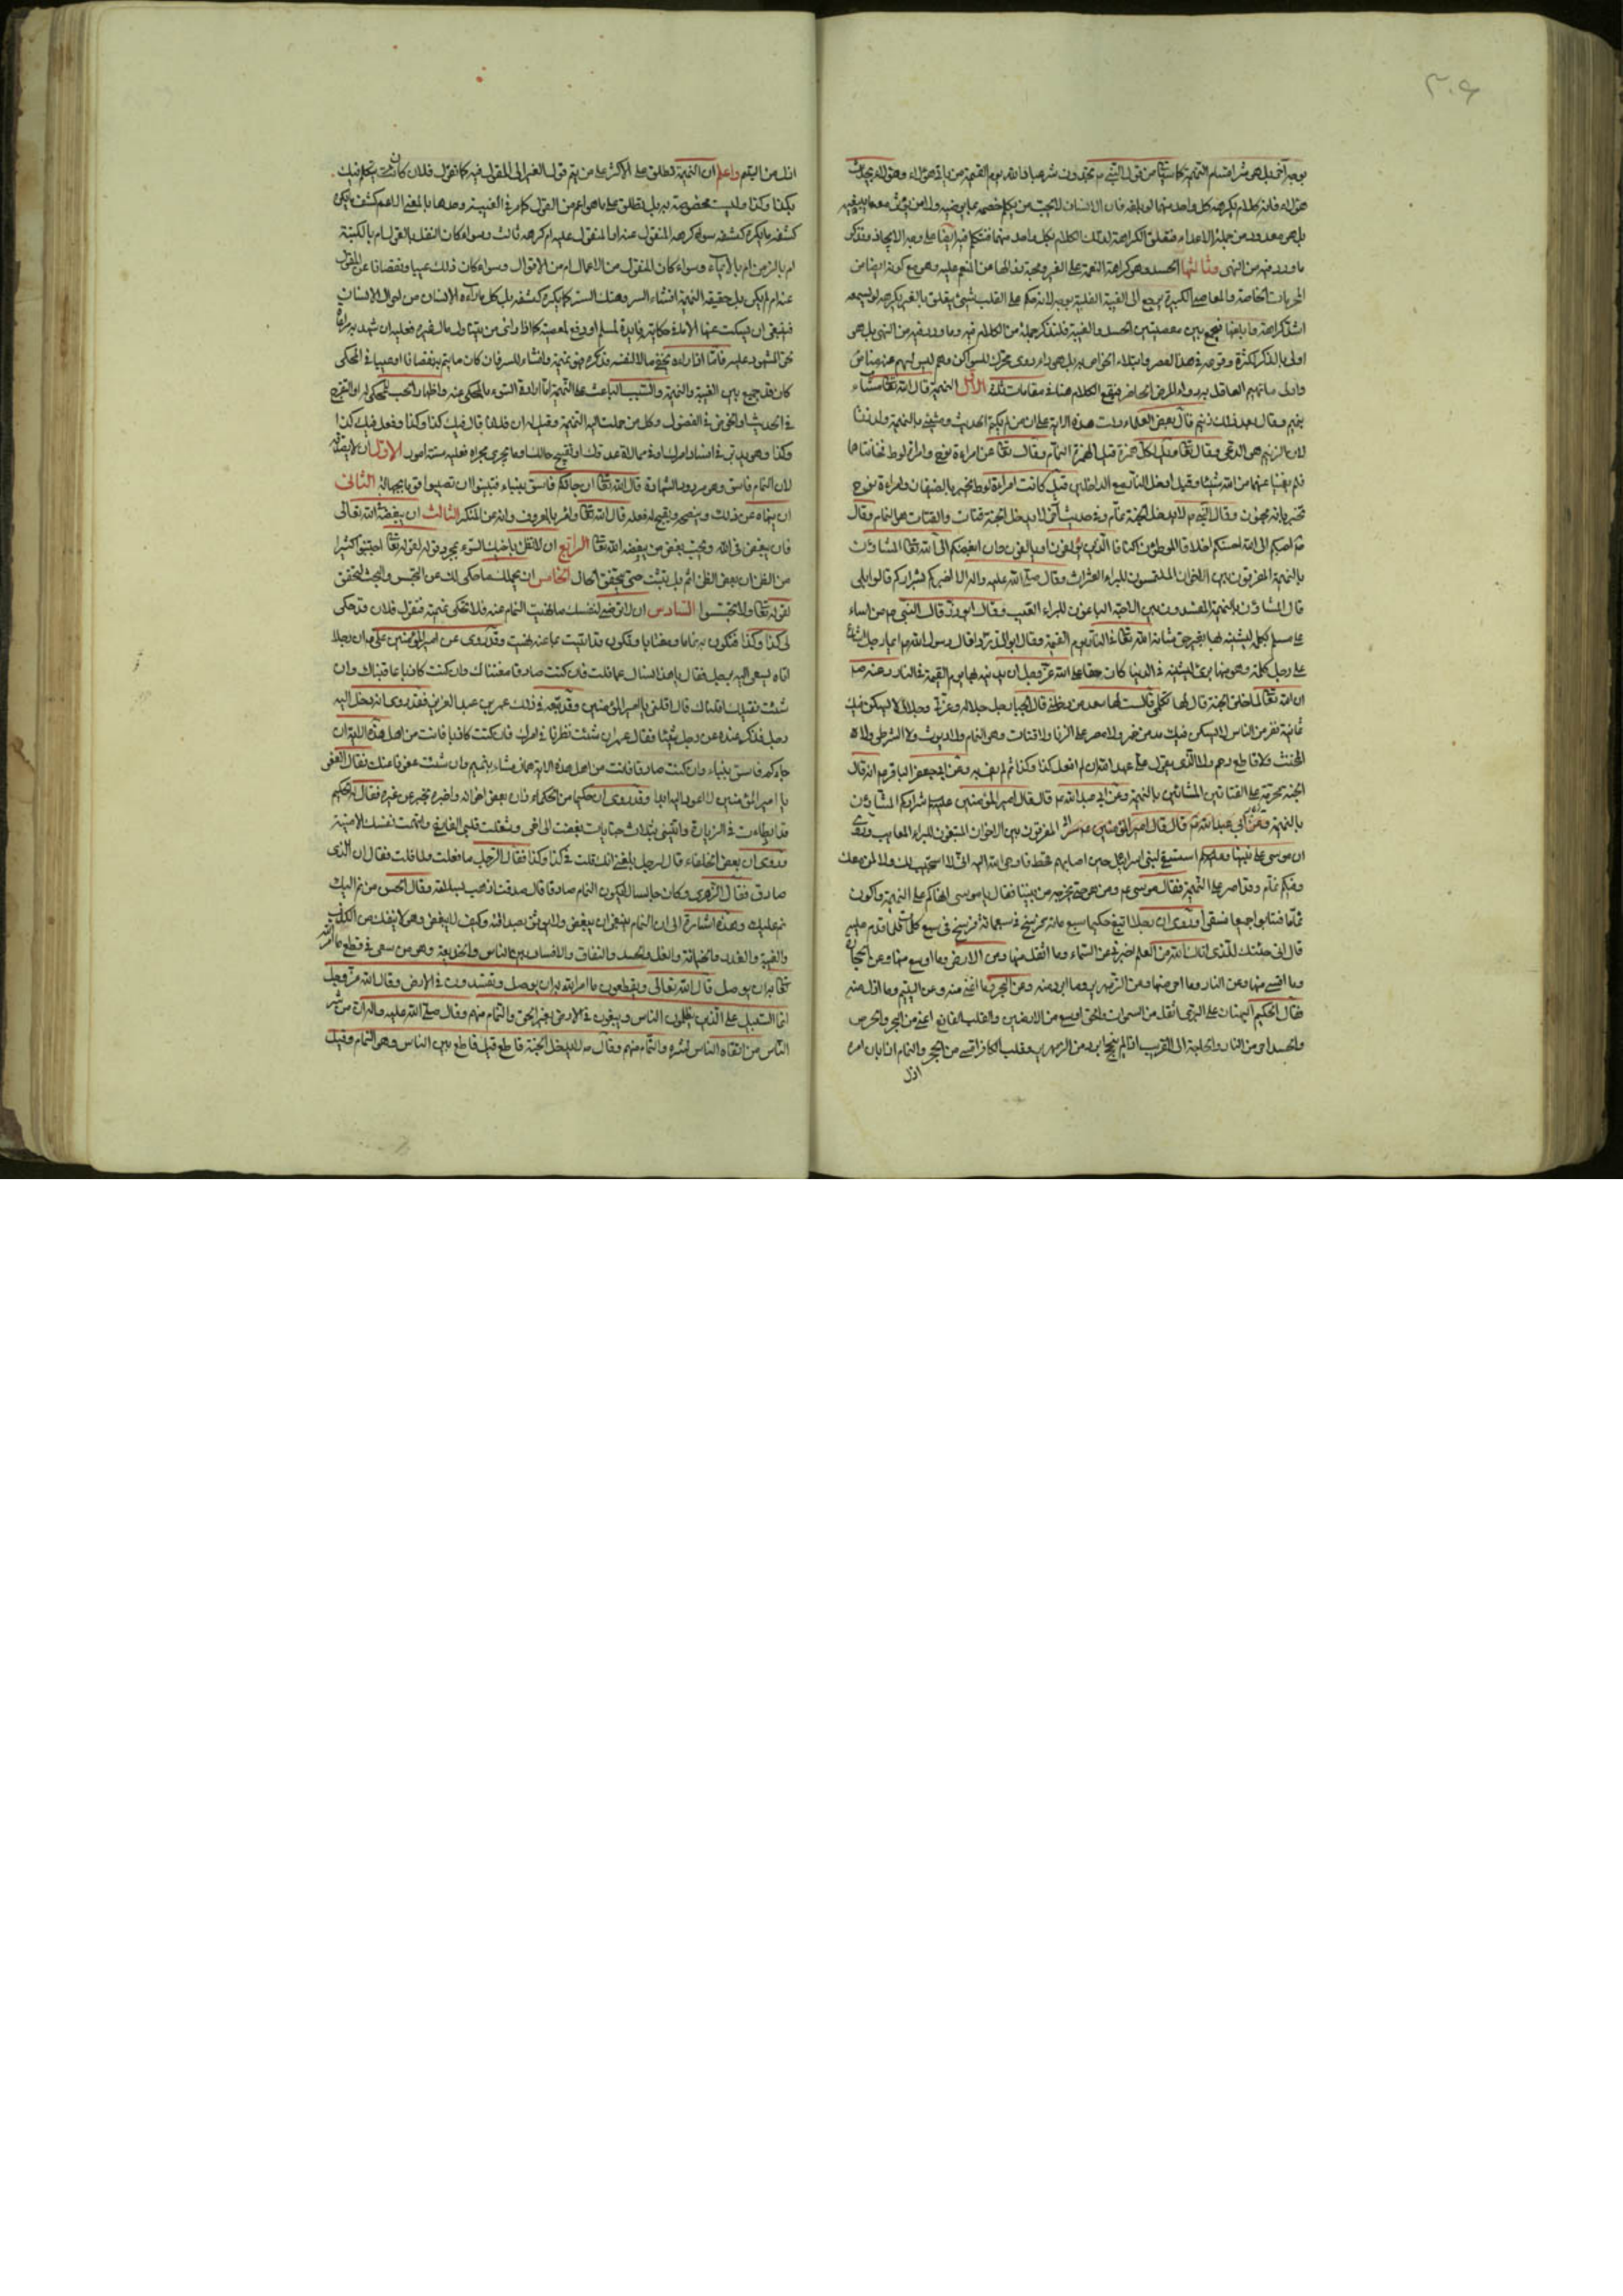 ٣٠٤
بوجه آخر بل هو شر اقسام النميمة كما سيأتى من قول النبى ص تجدون شر عباد الله يوم القيمة من يأتى هؤلاء وهؤلاء بحديث
هؤلاء فانه كلام يكرهه كل واحد منهما لو بلغه فان الانسان لا يحب من يكلم خصمه بما يرضيه
بل هو معدود من جملة الاعداء فيتعلق الكراهة لذلك الكلام بكل واحد منهما فنتكلم فيه ايضا على وجه الايجاز ونذكر
ما ورد فيه من النهى وثالثها الحسد وهو كراهة النعمة على الغير ومحبة زوالها عن المنعم عليه وهو مع كونه ايضا من
المحرمات الخاصة والمعاصى الكبيرة يرجع الى الغيبة القلبية بوجه لانه حكم على القلب بشىء يتعلق بالغير يكرهه لو سمعه
اشد كراهة وما بلغها فيجمع بين معصيتين الحسد والغيبة فلنذكر جملة من الكلام فيه وما ورد فيه من النهى بل هو
اولى بالذكر لكثرة وقوعه فى هذا العصر وابتلاء الخواص به
وأولى ما يتهم العاقل به دواء المرض الحاضر فيقع الكلام هنا فى مقامات ثلثة الاول النميمة قال الله تعالى هماز مشاء
بنميم وقال بعد ذلك زنيم قال بعض العلماء دلت هذه الاية على ان من لم يكتم الحديث ومشى بالنميمة ولد زنا
لان الزنيم هو الدعى وقال تعالى ويل لكل همزة قيل الهمزة النمام وقال تعالى عن امراة نوح وامراة لوط فخانتاهما
فلم يغنيا عنهما من الله شيئا وقيل ادخلا النار مع الداخلين قيل كانت امراة لوط تخبر بالضيفان وامراة نوح
تخبر بانه مجنون وقال النبى ص لا يدخل الجنة نمام وفى حديث آخر لا يدخل الجنة قتات والقتات هو النمام وقال
ص احبكم الى الله احسنكم اخلاقا الموطئون اكنافا الذين يألفون ويؤلفون وان ابغضكم الى الله تعالى المشاؤن
بالنميمة المفرقون بين الاخوان الملتمسون للبراء العثرات وقال صلى الله عليه واله الا اخبركم بشراركم قالوا بلى
قال المشاؤن بالنميمة المفسدون بين الاحبة الباغون للبراء العيب وقال ابو ذر قال النبى ص من اشاد
على مسلم كلمة ليشينه بها بغير حق شانه الله تعالى فى النار يوم القيمة وقال ابو الدرداء قال رسول الله ص ايما رجل اشاع
على رجل كلمة وهو منها برئ ليشينه فى الدنيا كان حقا على الله عز وجل ان يدينه بها يوم القيمة فى النار وعنه ص
ان الله تعالى لما خلق الجنة قال لها تكلمى قالت سعد من دخلنى قال الجبار جل جلاله وعزتى وجلالى لا يسكن فيك
ثمانية نفر من الناس لا يسكن فيك مدمن خمر ولا مصر على الزنا ولا قتات وهو النمام ولا ديوث ولا الشرطى ولا
المخنث ولا قاطع رحم ولا الذى يقول على عهد الله ان لم افعل كذا وكذا ثم لم يف به وعن ابى جعفر الباقر ع انه قال
الجنة محرمة على القتاتين المشائين بالنميمة وعن ابى عبد الله ع قال قال امير المؤمنين عليه السلام شراركم المشاؤن
بالنميمة المفرقون بين الاحبة المبتغون للبراء المعايب وروى
ان موسى على نبينا وعليه السلام استسقى لبنى اسرائيل حين اصابهم قحط فاوحى الله اليه انى لا استجيب لك ولا لمن معك
وفيكم نمام وقد اصر على النميمة فقال موسى ع ومن هو حتى نخرجه من بيننا فقال يا موسى انهاكم عن النميمة واكون
نماما فتابوا جميعا فسقوا وروى ان رجلا اتبع حكيما سبع مائة فرسخ فى سبع كلمات فلما قدم عليه
قال انى جئتك للذى اتاك الله من العلم اخبرنى عن السماء وما اثقل منها وعن الارض وما اوسع منها وعن الحجارة
وما اقسى منها وعن النار وما احر منها وعن الزمهرير وما ابرد منه وعن البحر وما اغنى منه وعن اليتيم وما اذل منه
فقال الحكيم البهتان على البرئ اثقل من السموات والحق اوسع من الارضين والقلب القانع اغنى من البحر والحرص
والحسد احر من النار والحاجة الى القريب اذا لم تنجح ابرد من الزمهرير وقلب الكافر اقسى من الحجر والنمام اذا بان امره
اذل
اذل من اليتيم واعلم ان النميمة تطلق فى الاكثر على من ينم قول الغير الى المقول فيه كما تقول فلان كان يتكلم فيك
بكذا وكذا وليست مخصوصة به بل تطلق على ما هو اعم من القول كما مر فى الغيبة وحدها بالمعنى الاعم كشف ما يكره
كشفه سواء كرهه المنقول عنه او المنقول عليه ام كرهه ثالث وسواء كان النقل بالقول ام بالكتبة
ام بالرمز ام بالايماء وسواء كان المنقول من الاعمال ام من الاقوال وسواء كان ذلك عيبا ونقصانا على المقول
عنه ام لم يكن بل حقيقة النميمة افشاء السر وهتك الستر عما يكره كشفه بل كل ما رآه الانسان من احوال الانسان
فينبغى ان يسكت عنها الا ما فى حكايته فايدة لمسلم او دفع لمعصية كما اذا رأى من يتناول مال غيره فعليه ان يشهد به مراعاة
لحق المشهود عليه فاما اذا رآه يخفى مالا لنفسه فذكره فهو نميمة وافشاء للسر فان كان ما ينم به نقصانا او عيبا فى المحكى
كان قد جمع بين الغيبة والنميمة والسبب الباعث على النميمة اما ارادة السوء بالمحكى عنه واظهار الحب للمحكى له او التفرج
فى الحديث او الخوض فى الفضول وكل من حملت اليه النميمة وقيل له ان فلانا قال فيك كذا وكذا وفعل فيك كذا
وكذا وهو يدبر فى افساد امرك او فى ممالاة عدوك او تقبيح حالك او ما يجرى مجراه فعليه ستة امور الاول ان لا يصدقه
لان النمام فاسق وهو مردود الشهادة قال الله تعالى ان جاءكم فاسق بنباء فتبينوا ان تصيبوا قوما بجهالة الثانى
ان ينهاه عن ذلك وينصحه ويقبح له فعله قال الله تعالى وامر بالمعروف وانه عن المنكر الثالث ان يبغضه فى الله تعالى
فانه بغيض فى الله ويجب بغض من يبغضه الله تعالى الرابع ان لا تظن باخيك السوء بمجرد قوله لقوله تعالى اجتنبوا كثيرا
من الظن ان بعض الظن اثم بل تثبت حتى يتحقق الحال الخامس ان لا يحملك ما حكى لك على التجسس والبحث لتحقق
لقوله تعالى ولا تجسسوا السادس ان لا ترضى لنفسك ما نهيت النمام عنه فلا تحكى نميمته فتقول فلان قد حكى
لى كذا وكذا فتكون به نماما ومغتابا وتكون قد اتيت بما عنه نهيت وقد روى عن امير المؤمنين على ع ان رجلا
اتاه يسعى اليه برجل فقال يا هذا نسال عما قلت فان كنت صادقا مقتناك وان كنت كاذبا عاقبناك وان
شئت نقيلك اقلناك قال اقلنى يا امير المؤمنين وقد تبعه فى ذلك عمر بن عبد العزيز فقد روى انه دخل اليه
رجل فذكر عنده عن رجل شيئا فقال عمر ان شئت نظرنا فى امرك فان كنت كاذبا فانت من اهل هذه الاية ان
جاءكم فاسق بنباء وان كنت صادقا فانت من اهل هذه الاية هماز مشاء بنميم وان شئت عفونا عنك فقال العفو
يا امير المؤمنين لا اعود اليه ابدا وقد روى ان حكيما من الحكماء زاره بعض اخوانه واخبره بخبر عن غيره فقال له الحكيم
قد ابطاءت فى الزيارة واتيتنى بثلاث جنايات بغضت الى اخى وشغلت قلبى الفارغ واتهمت نفسك الامينة
وروى ان بعض الخلفاء قال لرجل بلغنى انك قلت فى كذا وكذا فقال الرجل ما فعلت ولا قلت فقال ان الذى
صادق فقال الزهرى وكان جالسا لا يكون النمام صادقا قال صدقت اذهب بسلامة وقال الحسن من نم اليك
نم عليك وهذه اشارة الى ان النمام ينبغى ان يبغض ولا يوثق بصداقته وكيف لا يبغض وهو لا ينفك من الكذب
والغيبة والغدر والخيانة والغل والحسد والنفاق والافساد بين الناس والخديعة وهو من سعى فى قطع ما امر الله
تعالى به ان يوصل قال الله تعالى ويقطعون ما امر الله به ان يوصل ويفسدون فى الارض وقال الله عز وجل
انما السبيل على الذين يظلمون الناس ويبغون فى الارض بغير الحق والنمام منهم وقال صلى الله عليه واله ان من شر
الناس من اتقاه الناس لشره والنمام منهم وقال ص لا يدخل الجنة قاطع قيل قاطع بين الناس وهو النمام وقيل